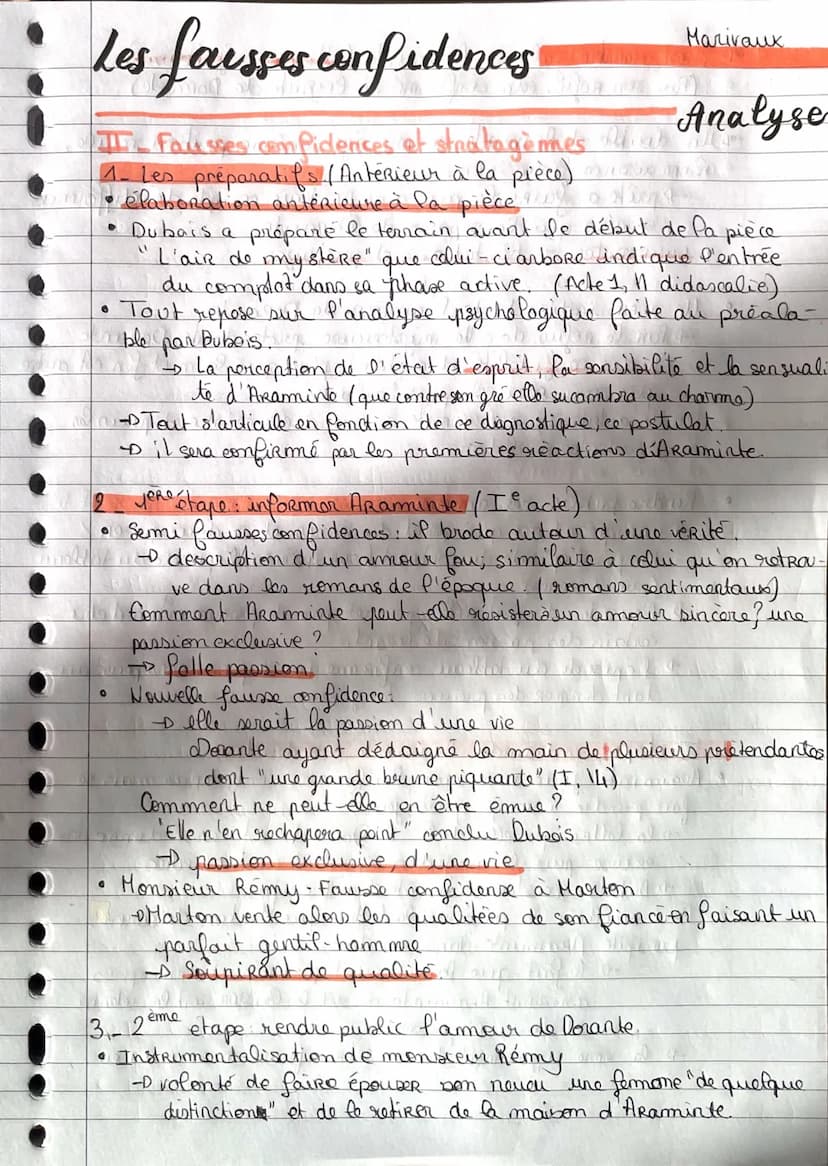 Les fausses confidences
Marivaux
Analyse
II - Fausses confidences et stratagèmes
1 - Les préparatifs (Antérieur à la pièce)
• élaboration antérieure à la pièce
• Dubois a préparé le terrain avant le début de la pièce
"L'air de mystère" que celui-ci arbore indique l'entrée
du complot dans sa phase active. (Acte 1, 11 didascalie)
• Tout repose sur l'analyse psychologique faite au préala-
ble par Dubois.
→ La perception de l'état d'esprit, la sensibilité et la sensuali
té d'Araminte (que contre son gré elle sucombra au charme)
→ Tout s'articule en fonction de ce diagnostique, ce postulat.
→ il sera confirmé par les premières réactions d'Araminte.
2 - 1ère étape : informer Araminte (Iᵉ acte)
• Semi fausses confidences : il brode autour d'une vérité.
→ description d'un amour fou, similaire à celui qu'on retrou-
ve dans les romans de l'époque. (romans sentimentaux)
Comment Araminte peut-elle résister à un amour sincère? une
passion exclusive ?
→ folle passion.
• Nouvelle fausse confidence :
→ elle serait la passion d'une vie
Dorante ayant dédaigné la main de plusieurs prétendantes
dont "une grande brune piquante" (I, 14)
Comment ne peut-elle en être émue ?
"Elle n'en réchapera point" conclu Dubois
→ passion exclusive, d'une vie
• Monsieur Rémy - Fausse confidense à Marton
→ Marton vente alors les qualitées de son fiancé en faisant un
parfait gentil-homme
→ Soupirant de qualité.
3 - 2ème étape : rendre public l'amour de Dorante.
• Instrumentalisation de monsieur Rémy
→ volonté de faire épouser son neveu une femme "de quelque
distinction" et de le retirer de la maison d'Araminte.